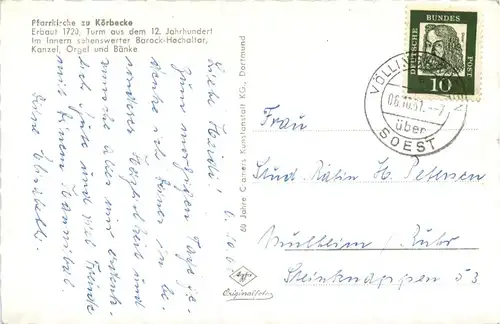 Pfarrkirche zu Körbecke
Erbaut 1720, Turm aus dem 12. Jahrhundert
Im Innern sehenswerter Barock-Hochaltar,
Kanzel, Orgel und Bänke.
Liebe Heidi!
Zum morgigen Tage ge-
denke ich Deiner in be-
sonderer Herzlichkeit und
wünsche aber nur erdenk-
lich Gute und viel Freude
mit Deinem Hannibal.
Deine
60 Jahre Cramers Kunstanstalt KG., Dortmund
Agfa
Originalfoto
DEUTSCHE BUNDES POST
10
über
SOEST
Frau
Stud. Rätin H. Petersen
Mülheim / Ruhr
Steinknappen 53